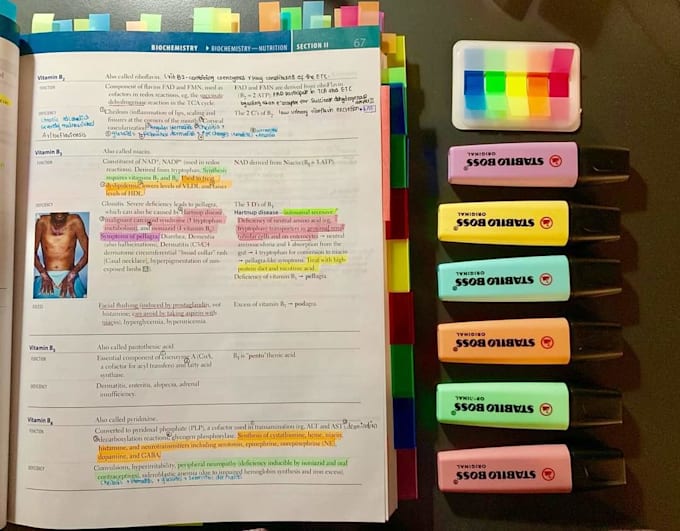 BIOCHEMISTRY ▸ BIOCHEMISTRY—NUTRITION SECTION II 67
Vitamin B2
Also called riboflavin. Vit B2-containing coenzymes → key constituent of the ETC
FUNCTION
Component of flavins FAD and FMN, used as
cofactors in redox reactions, eg, the succinate
dehydrogenase reaction in the TCA cycle.
FAD and FMN are derived from riboflavin
(B2 ≈ 2 ATP). FAD participate in TCA and ETC
DEFICIENCY
Cheilosis (inflammation of lips, scaling and
fissures at the corners of the mouth), Corneal
vascularization.
The 2 C's of B2. low urinary riboflavin excretion
Vitamin B3
Also called niacin.
FUNCTION
Constituent of NAD+, NADP+ (used in redox
reactions). Derived from tryptophan. Synthesis
requires vitamins B2 and B6. Used to treat
dyslipidemia; lowers levels of VLDL and raises
levels of HDL.
NAD derived from Niacin (B3 ≈ 3 ATP).
DEFICIENCY
Glossitis. Severe deficiency leads to pellagra,
which can also be caused by Hartnup disease,
malignant carcinoid syndrome (↑ tryptophan
metabolism), and isoniazid (↓ vitamin B6).
Symptoms of pellagra: Diarrhea, Dementia
(also hallucinations), Dermatitis (C3/C4
dermatome circumferential "broad collar" rash
[Casal necklace], hyperpigmentation of sun-
exposed limbs
The 3 D's of B3.
Hartnup disease—autosomal recessive.
Deficiency of neutral amino acid (eg,
tryptophan) transporters in proximal renal
tubular cells and on enterocytes → neutral
aminoaciduria and ↓ absorption from the
gut → ↓ tryptophan for conversion to niacin
→ pellagra-like symptoms. Treat with high-
protein diet and nicotinic acid.
Deficiency of vitamin B3 → pellagra.
EXCESS
Facial flushing (induced by prostaglandin, not
histamine; can avoid by taking aspirin with
niacin), hyperglycemia, hyperuricemia.
Excess of vitamin B3 → podagra.
Vitamin B5
Also called pantothenic acid.
FUNCTION
Essential component of coenzyme A (CoA,
a cofactor for acyl transfers) and fatty acid
synthase.
B5 is "pento"thenic acid.
DEFICIENCY
Dermatitis, enteritis, alopecia, adrenal
insufficiency.
Vitamin B6
Also called pyridoxine.
FUNCTION
Converted to pyridoxal phosphate (PLP), a cofactor used in transamination (eg, ALT and AST),
decarboxylation reactions, glycogen phosphorylase. Synthesis of cystathionine, heme, niacin,
histamine, and neurotransmitters including serotonin, epinephrine, norepinephrine (NE),
dopamine, and GABA.
DEFICIENCY
Convulsions, hyperirritability, peripheral neuropathy (deficiency inducible by isoniazid and oral
contraceptives), sideroblastic anemia (due to impaired hemoglobin synthesis and iron excess).
STABILO BOSS
ORIGINAL
STABILO BOSS
ORIGINAL
STABILO BOSS
ORIGINAL
STABILO BOSS
ORIGINAL
STABILO BOSS
ORIGINAL
STABILO BOSS
ORIGINAL